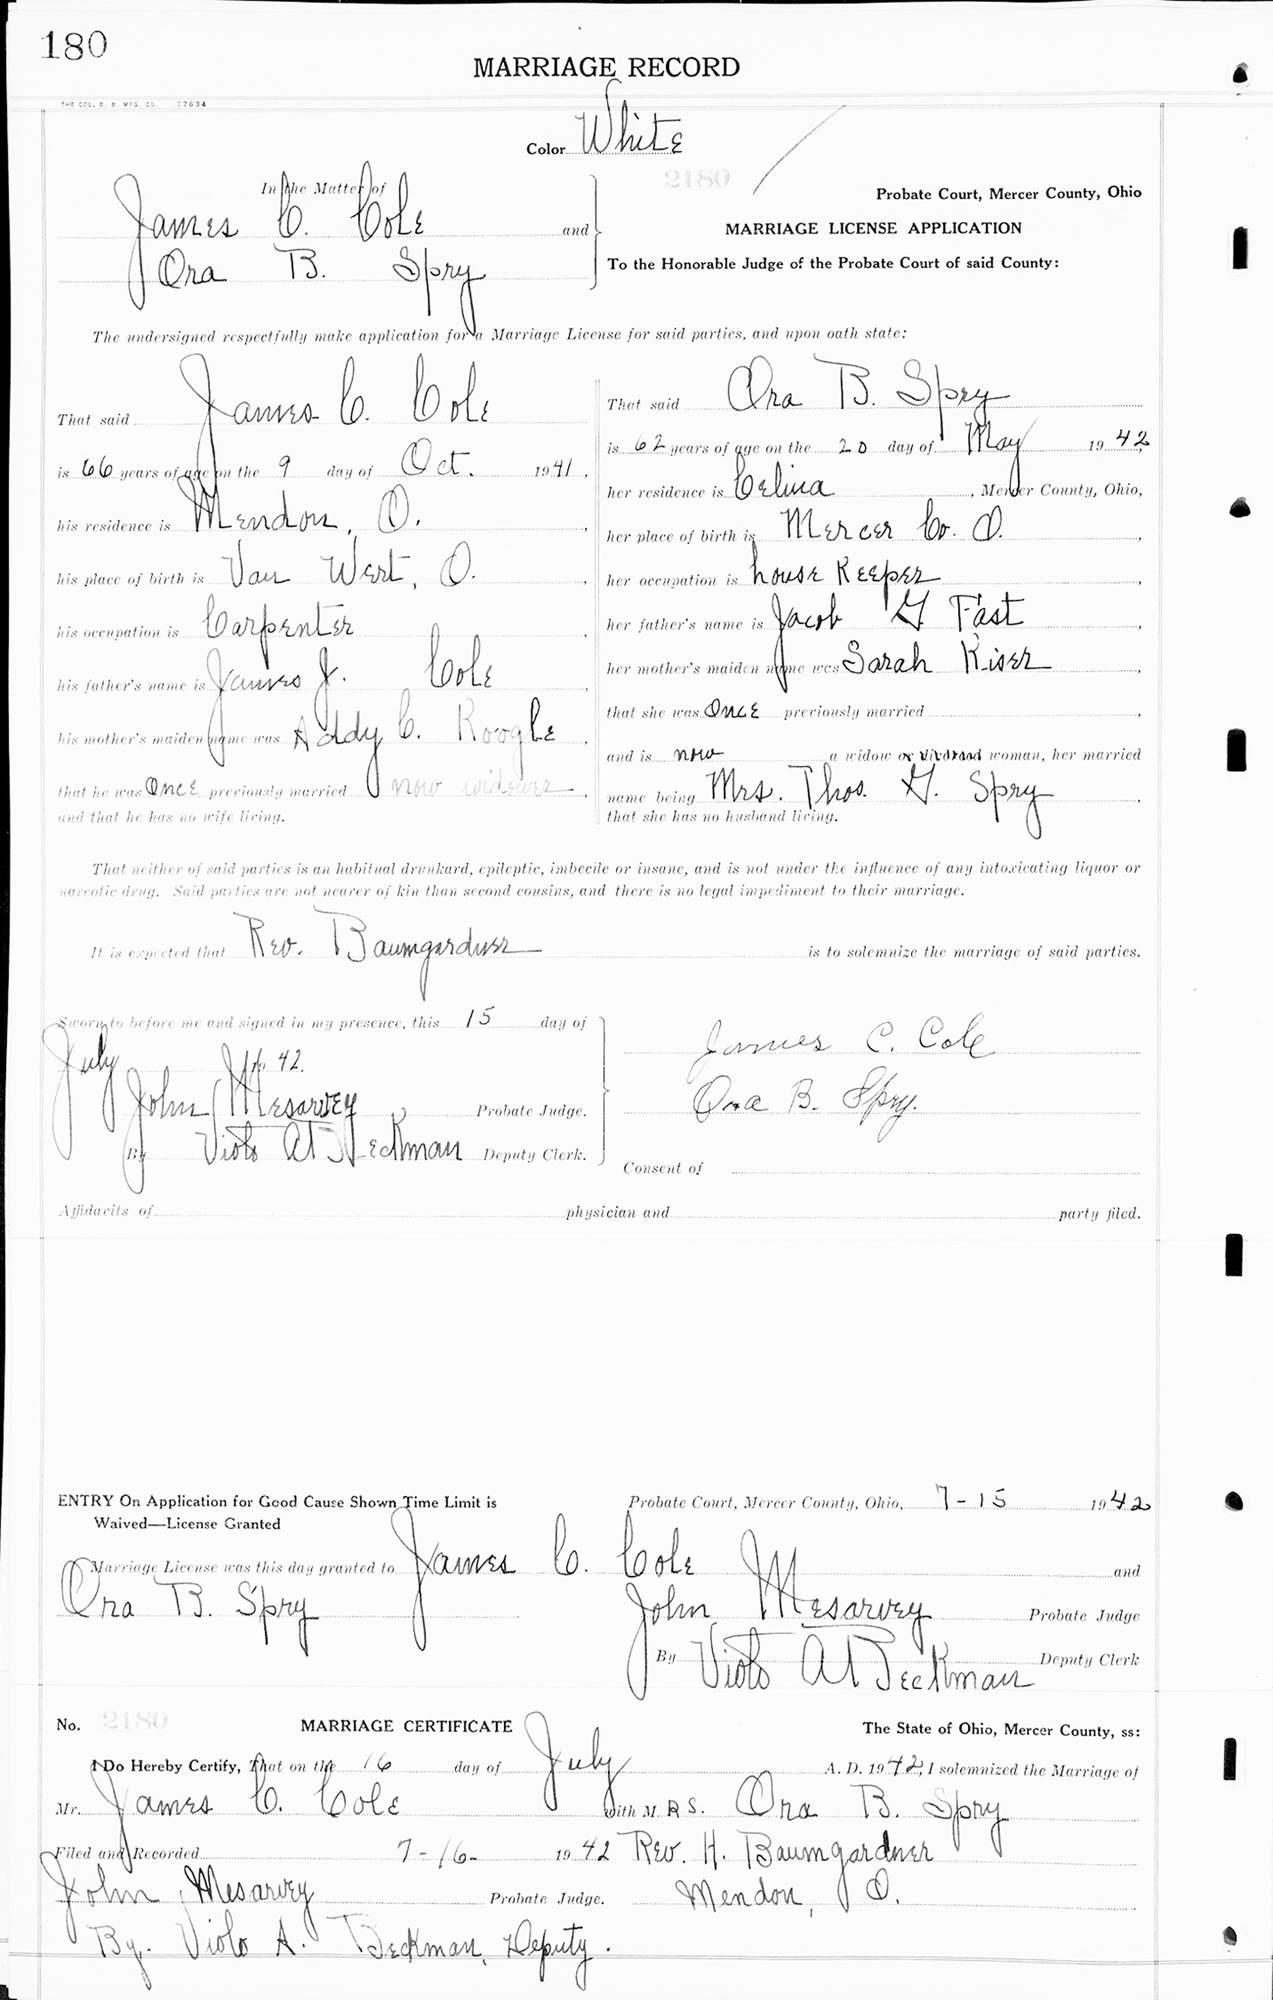 180
MARRIAGE RECORD
THE COL. B. B. MFG. CO. 77634
Color White
2180
In the Matter of
James C. Cole and
Ora B. Spry
Probate Court, Mercer County, Ohio
MARRIAGE LICENSE APPLICATION
To the Honorable Judge of the Probate Court of said County:
The undersigned respectfully make application for a Marriage License for said parties, and upon oath state:
That said James C. Cole
is 66 years of age on the 9 day of Oct. 1941,
his residence is Mendon, O.,
his place of birth is Van Wert, O.,
his occupation is Carpenter,
his father's name is James J. Cole,
his mother's maiden name was Addy C. Koogle,
that he was Once previously married now widower,
and that he has no wife living.
That said Ora B. Spry
is 62 years of age on the 20 day of May 1942,
her residence is Celina, Mercer County, Ohio,
her place of birth is Mercer Co. O.,
her occupation is house Keeper,
her father's name is Jacob G Fast,
her mother's maiden name was Sarah Kiser,
that she was Once previously married,
and is now a widow or divorced woman, her married
name being Mrs. Thos. G. Spry,
that she has no husband living.
That neither of said parties is an habitual drunkard, epileptic, imbecile or insane, and is not under the influence of any intoxicating liquor or
narcotic drug. Said parties are not nearer of kin than second cousins, and there is no legal impediment to their marriage.
It is expected that Rev. Baumgardner is to solemnize the marriage of said parties.
Sworn to before me and signed in my presence, this 15 day of
July 19 42.
John Mesarvey Probate Judge.
By Viola A Beckman Deputy Clerk.
James C. Cole
Ora B. Spry.
Consent of
Affidavits of physician and party filed.
ENTRY On Application for Good Cause Shown Time Limit is
Waived—License Granted
Probate Court, Mercer County, Ohio, 7-15 1942
Marriage License was this day granted to James C. Cole and
Ora B. Spry
John Mesarvey Probate Judge
By Viola A Beckman Deputy Clerk
No. 2180 MARRIAGE CERTIFICATE The State of Ohio, Mercer County, ss:
I Do Hereby Certify, That on the 16 day of July A. D. 1942, I solemnized the Marriage of
Mr. James C. Cole with MRS. Ora B. Spry
Filed and Recorded 7-16- 1942 Rev. H. Baumgardner
John Mesarvey Probate Judge. Mendon, O.
By. Viola A. Beckman, Deputy.